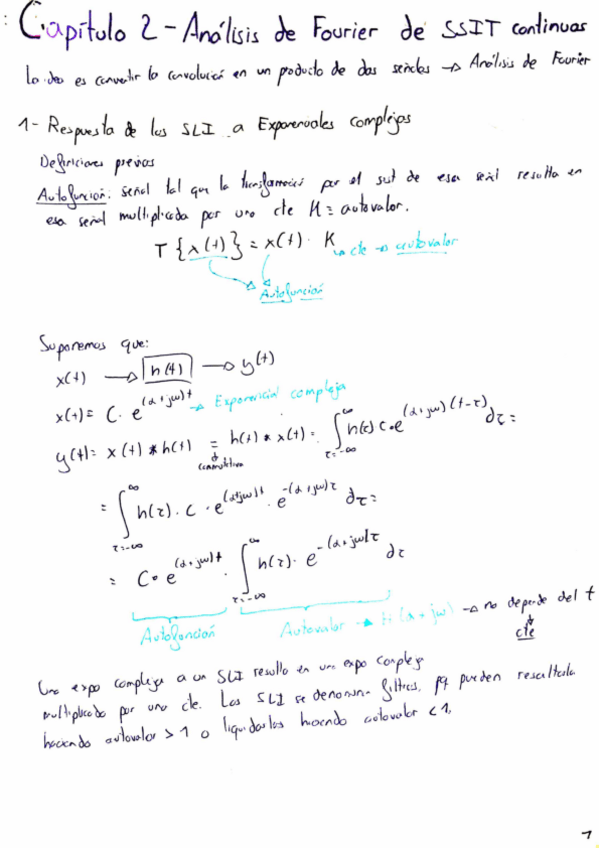 : Capítulo 2 - Análisis de Fourier de SSIT continuas
La idea es convertir la convolución en un producto de dos señales → Análisis de Fourier
1- Respuesta de los SLI a Exponenciales complejas
Definiciones previas
Autofunción: señal tal que la transformación por el sist de esa señal resulta en
esa señal multiplicada por una cte K = autovalor.
T {x(t)} = x(t) · K → cte → autovalor
Autofunción
Suponemos que:
x(t) → h(t) → y(t)
x(t) = C · e^(α+jω)t → Exponencial compleja
y(t) = x(t) * h(t) = h(t) * x(t) = ∫_{τ=-∞}^{∞} h(τ) C · e^(α+jω)(t-τ) dτ =
conmutativa
= ∫_{τ=-∞}^{∞} h(τ) · C · e^(α+jω)t · e^-(α+jω)τ dτ =
= C · e^(α+jω)t · ∫_{τ=-∞}^{∞} h(τ) · e^-(α+jω)τ dτ
Autofunción Autovalor → H(α+jω) → no depende del t
cte
Una expo compleja a un SLI resulta en una expo compleja
multiplicada por una cte. Los SLI se denominan filtros, pq pueden rescaltarla
haciendo autovalor > 1 o liquidarlas haciendo autovalor < 1.
1